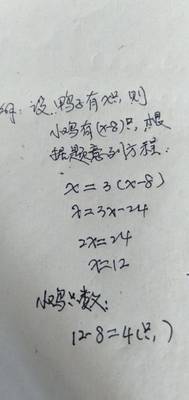 解: 设鸭子有x只, 则
小鸡有(x-8)只, 根
据题意列方程:
x=3(x-8)
x=3x-24
2x=24
x=12
小鸡只数:
12-8=4(只)